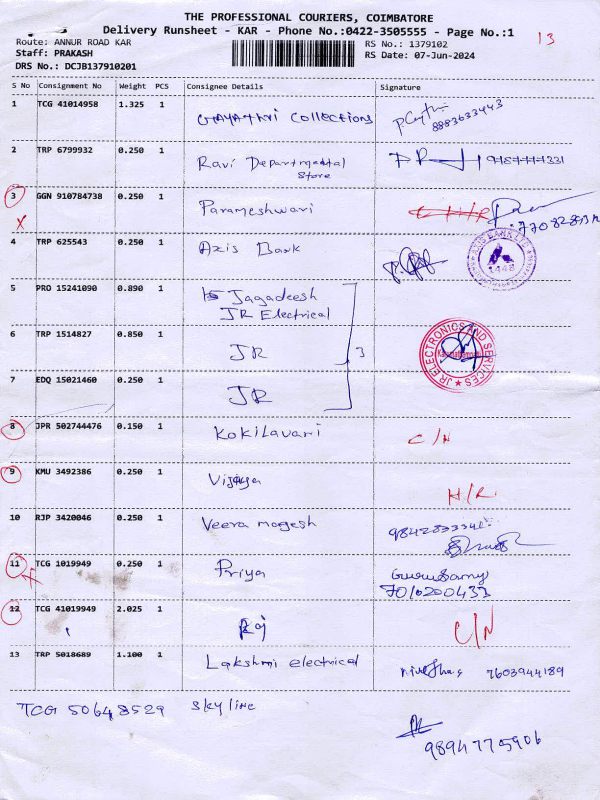 THE PROFESSIONAL COURIERS, COIMBATORE
Delivery Runsheet - KAR - Phone No.:0422-3505555 - Page No.:1
13
Route: ANNUR ROAD KAR
RS No.: 1379102
Staff: PRAKASH
RS Date: 07-Jun-2024
DRS No.: DCJB137910201
S No Consignment No Weight PCS Consignee Details Signature
1 TCG 41014958 1.325 1 GAYAtHri Collections
8883633443
2 TRP 6799932 0.250 1 Ravi Departmental
Store
3 GGN 910784738 0.250 1 Parameshwari
X
4 TRP 625543 0.250 1 Axis Bank
AXIS BANK LTD
1448
5 PRO 15241090 0.890 1 Jagadeesh
JR Electrical
6 TRP 1514827 0.850 1 JR 3
JR ELECTRONICS AND SERVICES
7 EDQ 15021460 0.250 1 JR
8 JPR 502744476 0.150 1 Kokilavani C/N
9 KMU 3492386 0.250 1 Vijaya H/R.
10 RJP 3420046 0.250 1 Veera magesh
11 TCG 1019949 0.250 1 Priya GuruSamy
7010200433
12 TCG 41019949 2.025 1 Raj C/N
13 TRP 5018689 1.100 1 Lakshmi electrical 7603944189
TCG 50648529 Sky line
9894775906